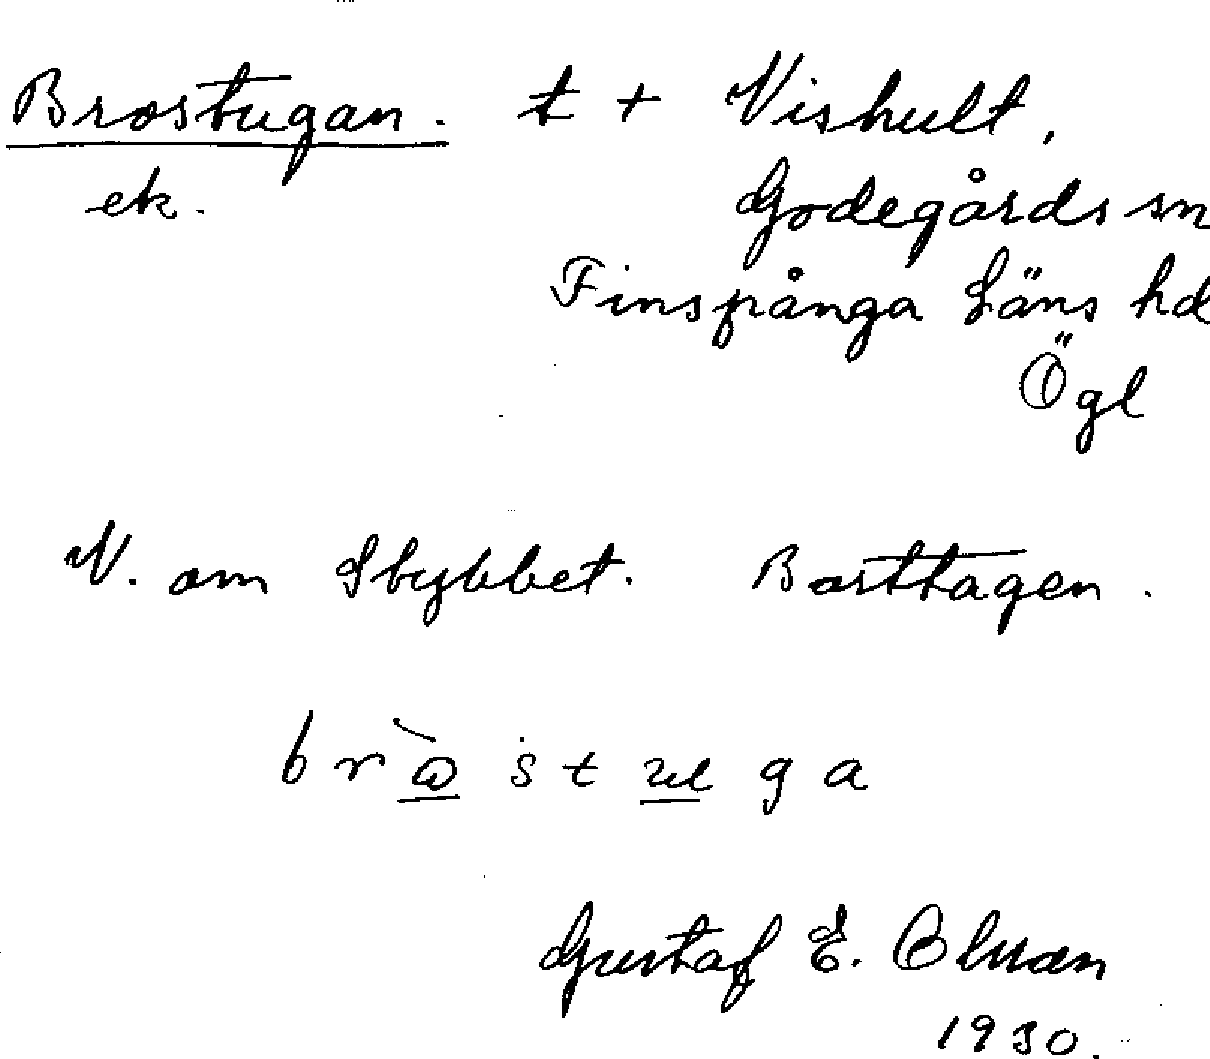 Brostugan. t + Vishult,
ek. Godegårds sn
Finspånga Läns hd
Ögl
V. om Borttagen.
b r ὼ̲ s t u̲ g a
Gustaf E.
1930.